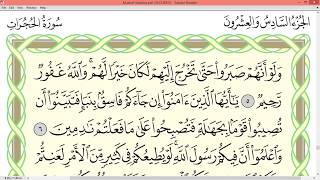 الجزء السادس والعشرون سورة الحجرات
وَلَوْ أَنَّهُمْ صَبَرُوا۟ حَتَّىٰ تَخْرُجَ إِلَيْهِمْ لَكَانَ خَيْرًا لَّهُمْ ۚ وَٱللَّهُ غَفُورٌ
رَّحِيمٌ ٥ يَـٰٓأَيُّهَا ٱلَّذِينَ ءَامَنُوٓا۟ إِن جَآءَكُمْ فَاسِقٌۢ بِنَبَإٍ فَتَبَيَّنُوٓا۟ أَن
تُصِيبُوا۟ قَوْمًۢا بِجَهَـٰلَةٍ فَتُصْبِحُوا۟ عَلَىٰ مَا فَعَلْتُمْ نَـٰدِمِينَ ٦
وَٱعْلَمُوٓا۟ أَنَّ فِيكُمْ رَسُولَ ٱللَّهِ ۚ لَوْ يُطِيعُكُمْ فِى كَثِيرٍ مِّنَ ٱلْأَمْرِ لَعَنِتُّمْ